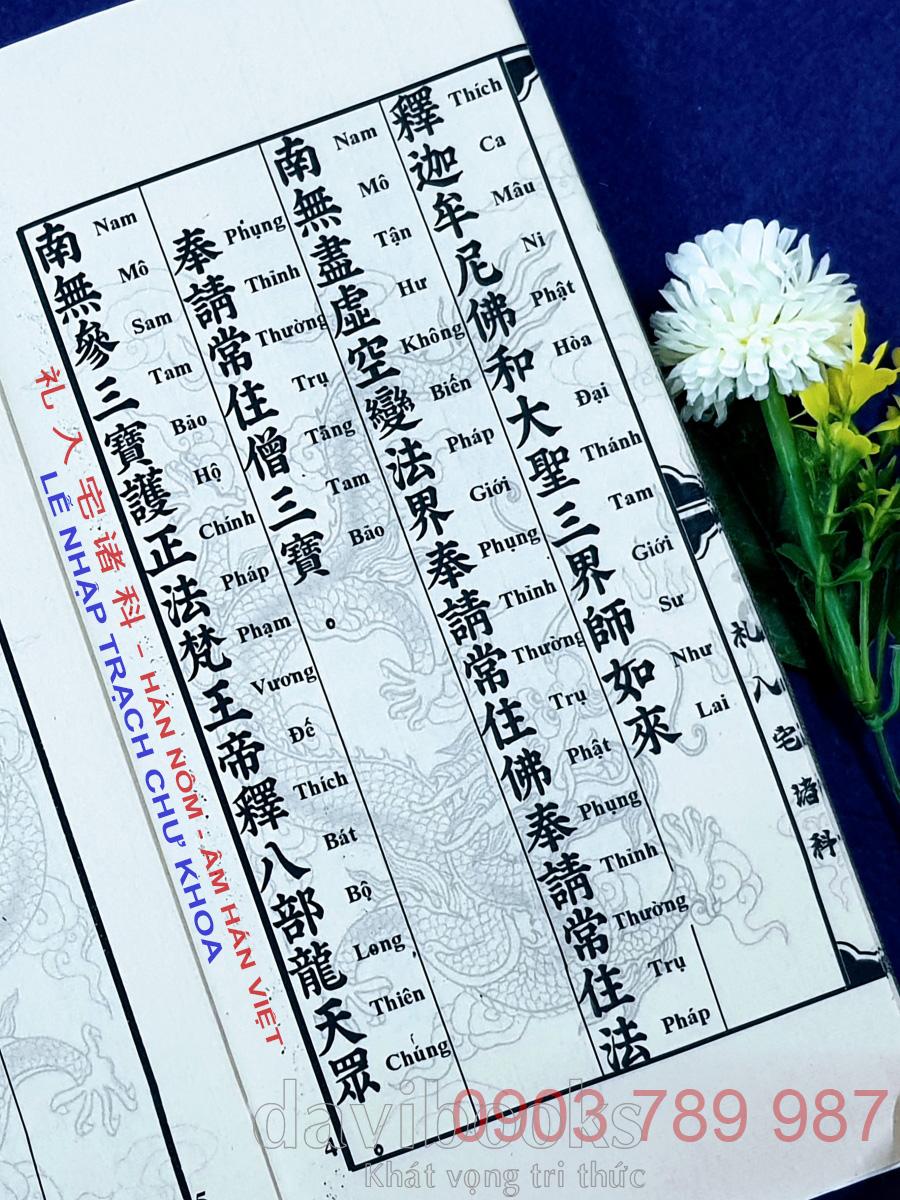 釋迦牟尼佛和大聖三界師如來
Thích Ca Mâu Ni Phật Hòa Đại Thánh Tam Giới Sư Như Lai
南無盡虛空變法界奉請常住佛奉請常住法
Nam Mô Tận Hư Không Biến Pháp Giới Phụng Thỉnh Thường Trụ Phật Phụng Thỉnh Thường Trụ Pháp
奉請常住僧三寶。
Phụng Thỉnh Thường Trụ Tăng Tam Bảo
南無參三寶護正法梵王帝釋八部龍天眾。
Nam Mô Sam Tam Bảo Hộ Chính Pháp Phạm Vương Đế Thích Bát Bộ Long Thiên Chúng
礼入宅诸科
4
5
礼入宅诸科 - HÁN NÔM - ÂM HÁN VIỆT
LỄ NHẬP TRẠCH CHƯ KHOA
davibooks
0903 789 987
Khát vọng tri thức